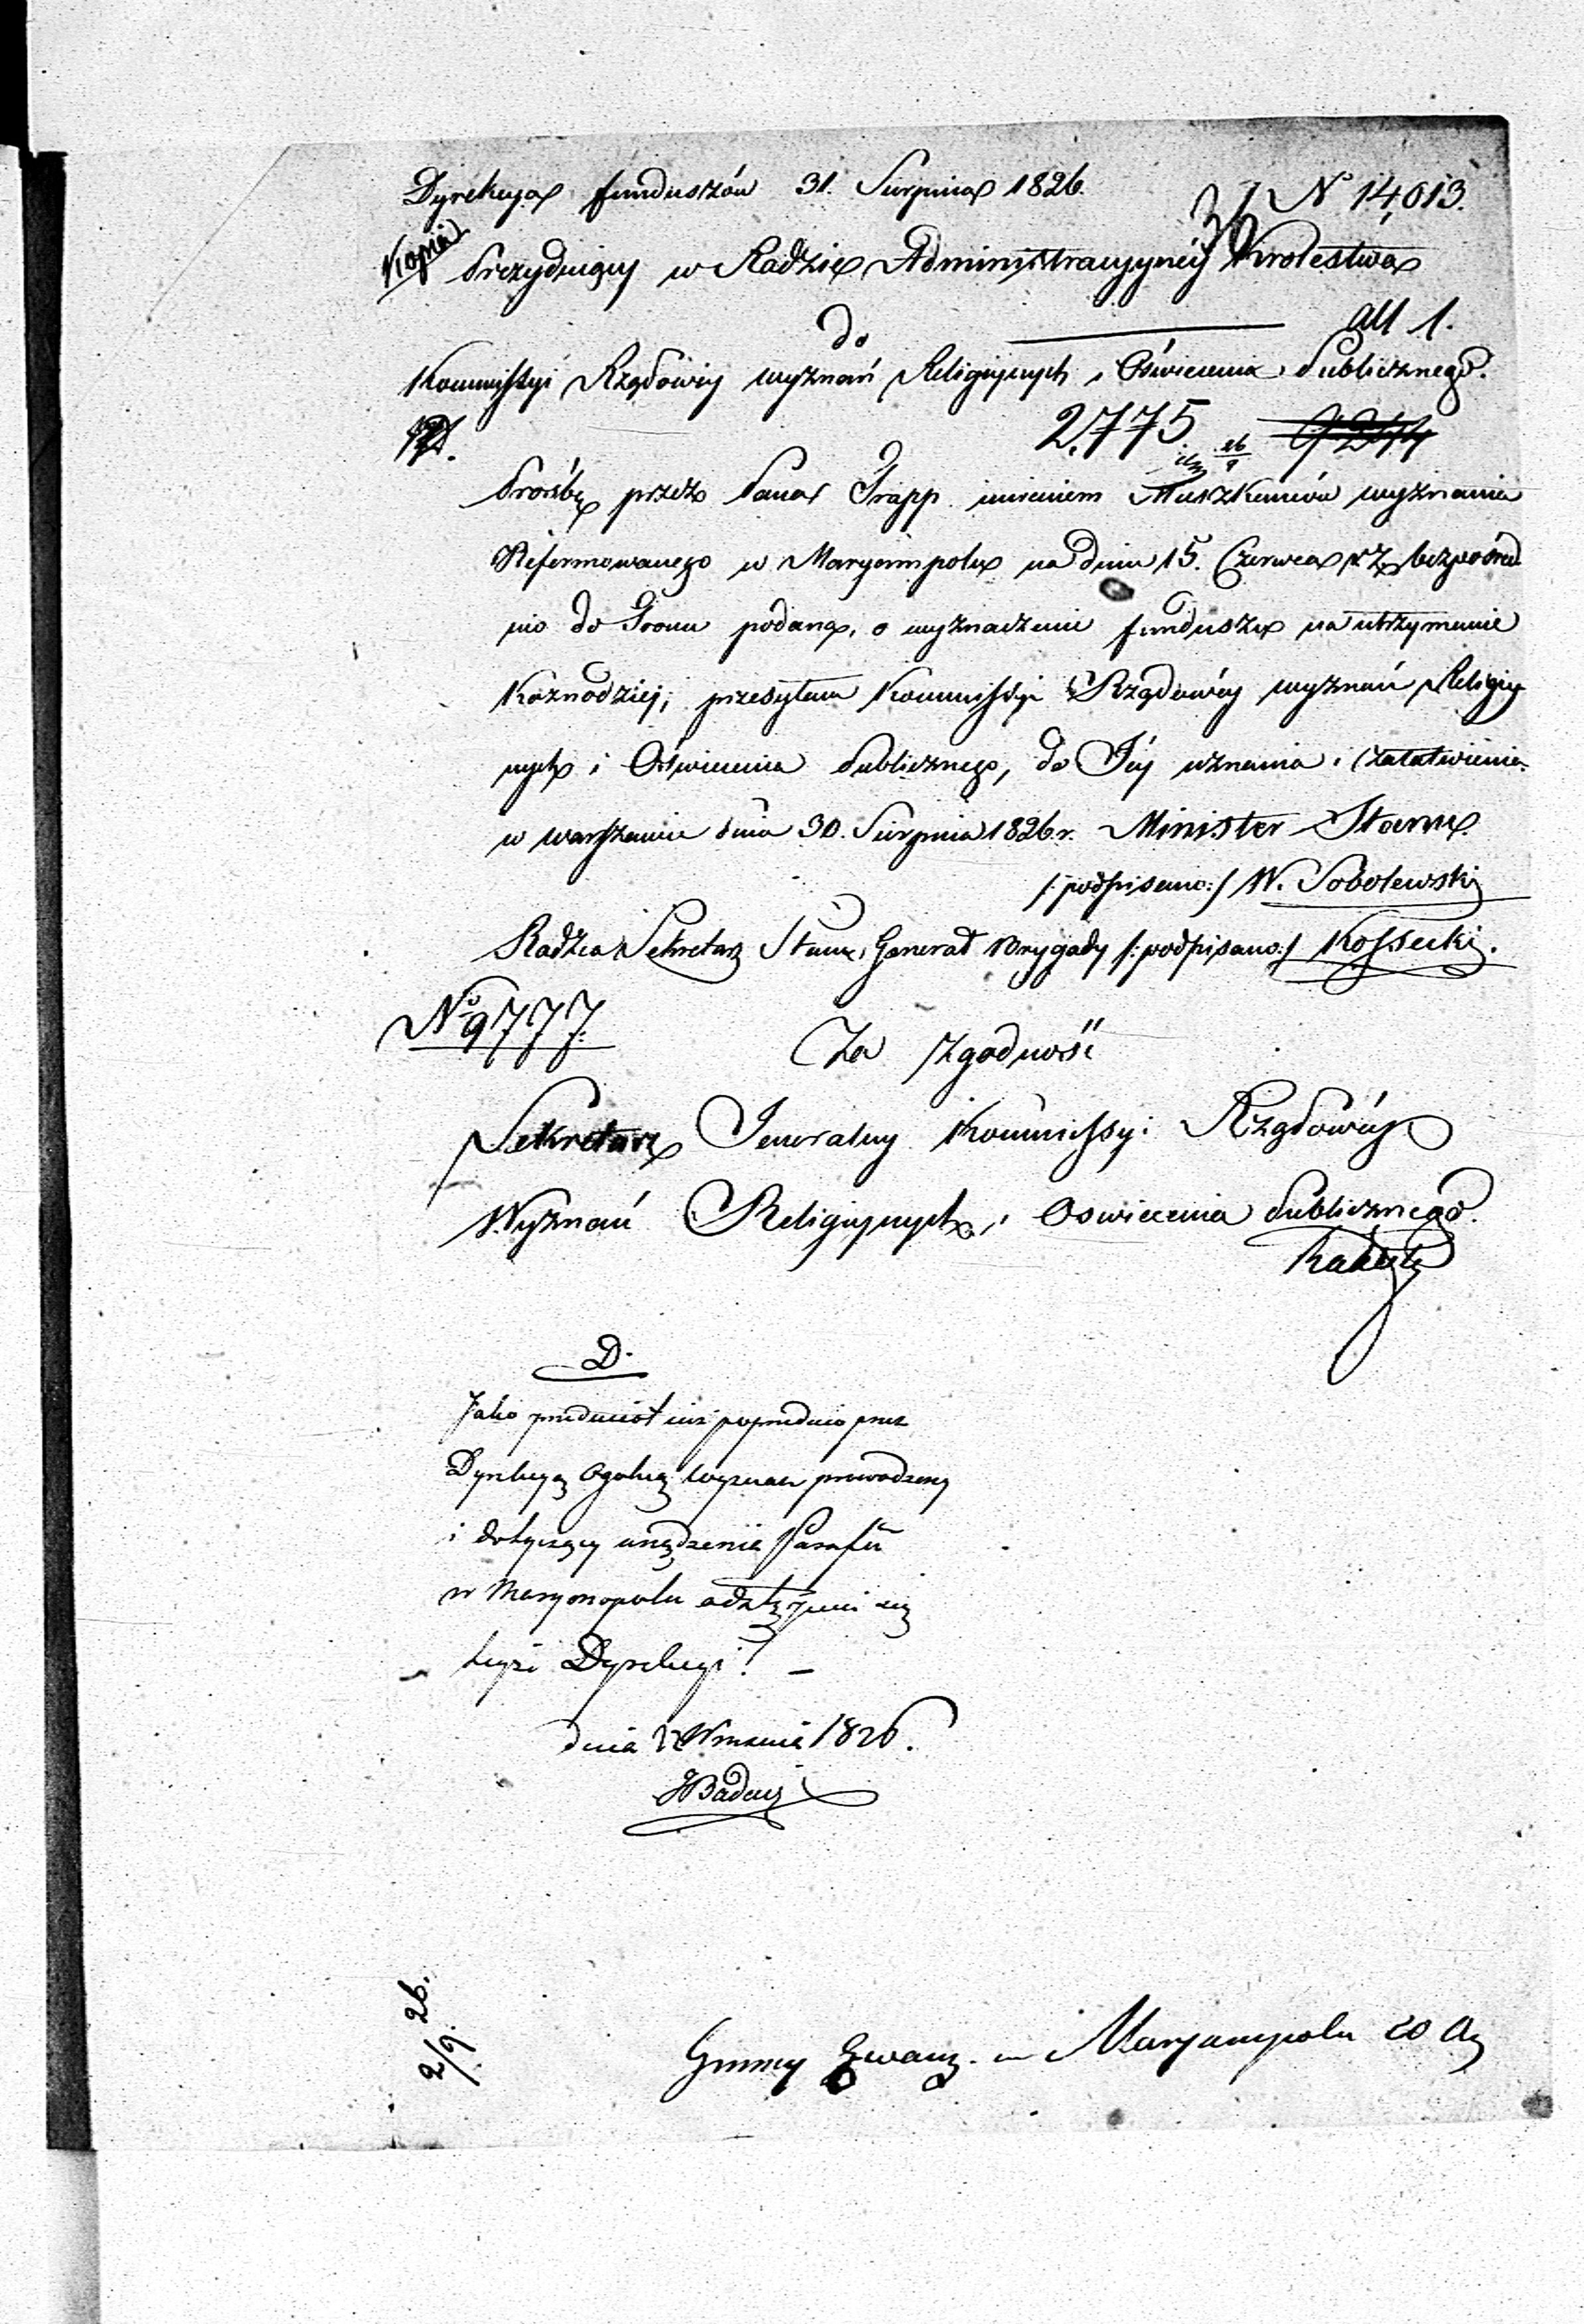 Dyrekcya funduszów 31. Sierpnia 1826.
N 14,013.
Kopia
Prezyduiący w Radzie Administracyynéy Krolestwa
do
all 1.
Kommissyi Rządowéy wyznań Religiynych i Oświecenia Publicznego.
2,775
Prożbę przez Pana Trapp imieniem Mieszkańców wyznania
Reformowanego w Maryampolu na dniu 15. Czerwca r. z. bezpośred
nio do Tronu podaną, o wyznaczenie funduszu na utrzymanie
Kaznodziei, przesyłam Kommissyi Rządowéy wyznań Religiy
nych i Oświecenia Publicznego, do Jéy uznania i załatwienia.
w Warszawie dnia 30. Sierpnia 1826 r. Minister Stanu
/:podpisano:/ W. Sobolewski
Radzca Sekretarz Stanu, Generał Brygady /:podpisano:/ Kossecki.
No 9777.
Za zgodność
Sekretarz Jeneralny Kommissyi Rządowéy
Wyznań Religiynych i Oswiecenia Publicznego.
D.
Jako przedmiot iuż poprzednio przez
Dyrekcyą Ogolną wyznań prowadzony
i dotyczący urządzenia Parafii
w Maryanopolu
teyże Dyrekcyi! –
dnia Września 1826.
2/9. 26.
Gminy Ewang. w Maryampolu